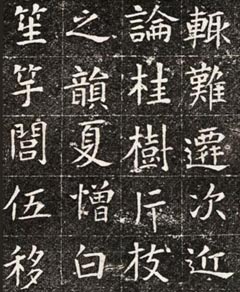 輙難遷次近
論桂樹片枝
之韻夏憎白
笙竽閭伍移